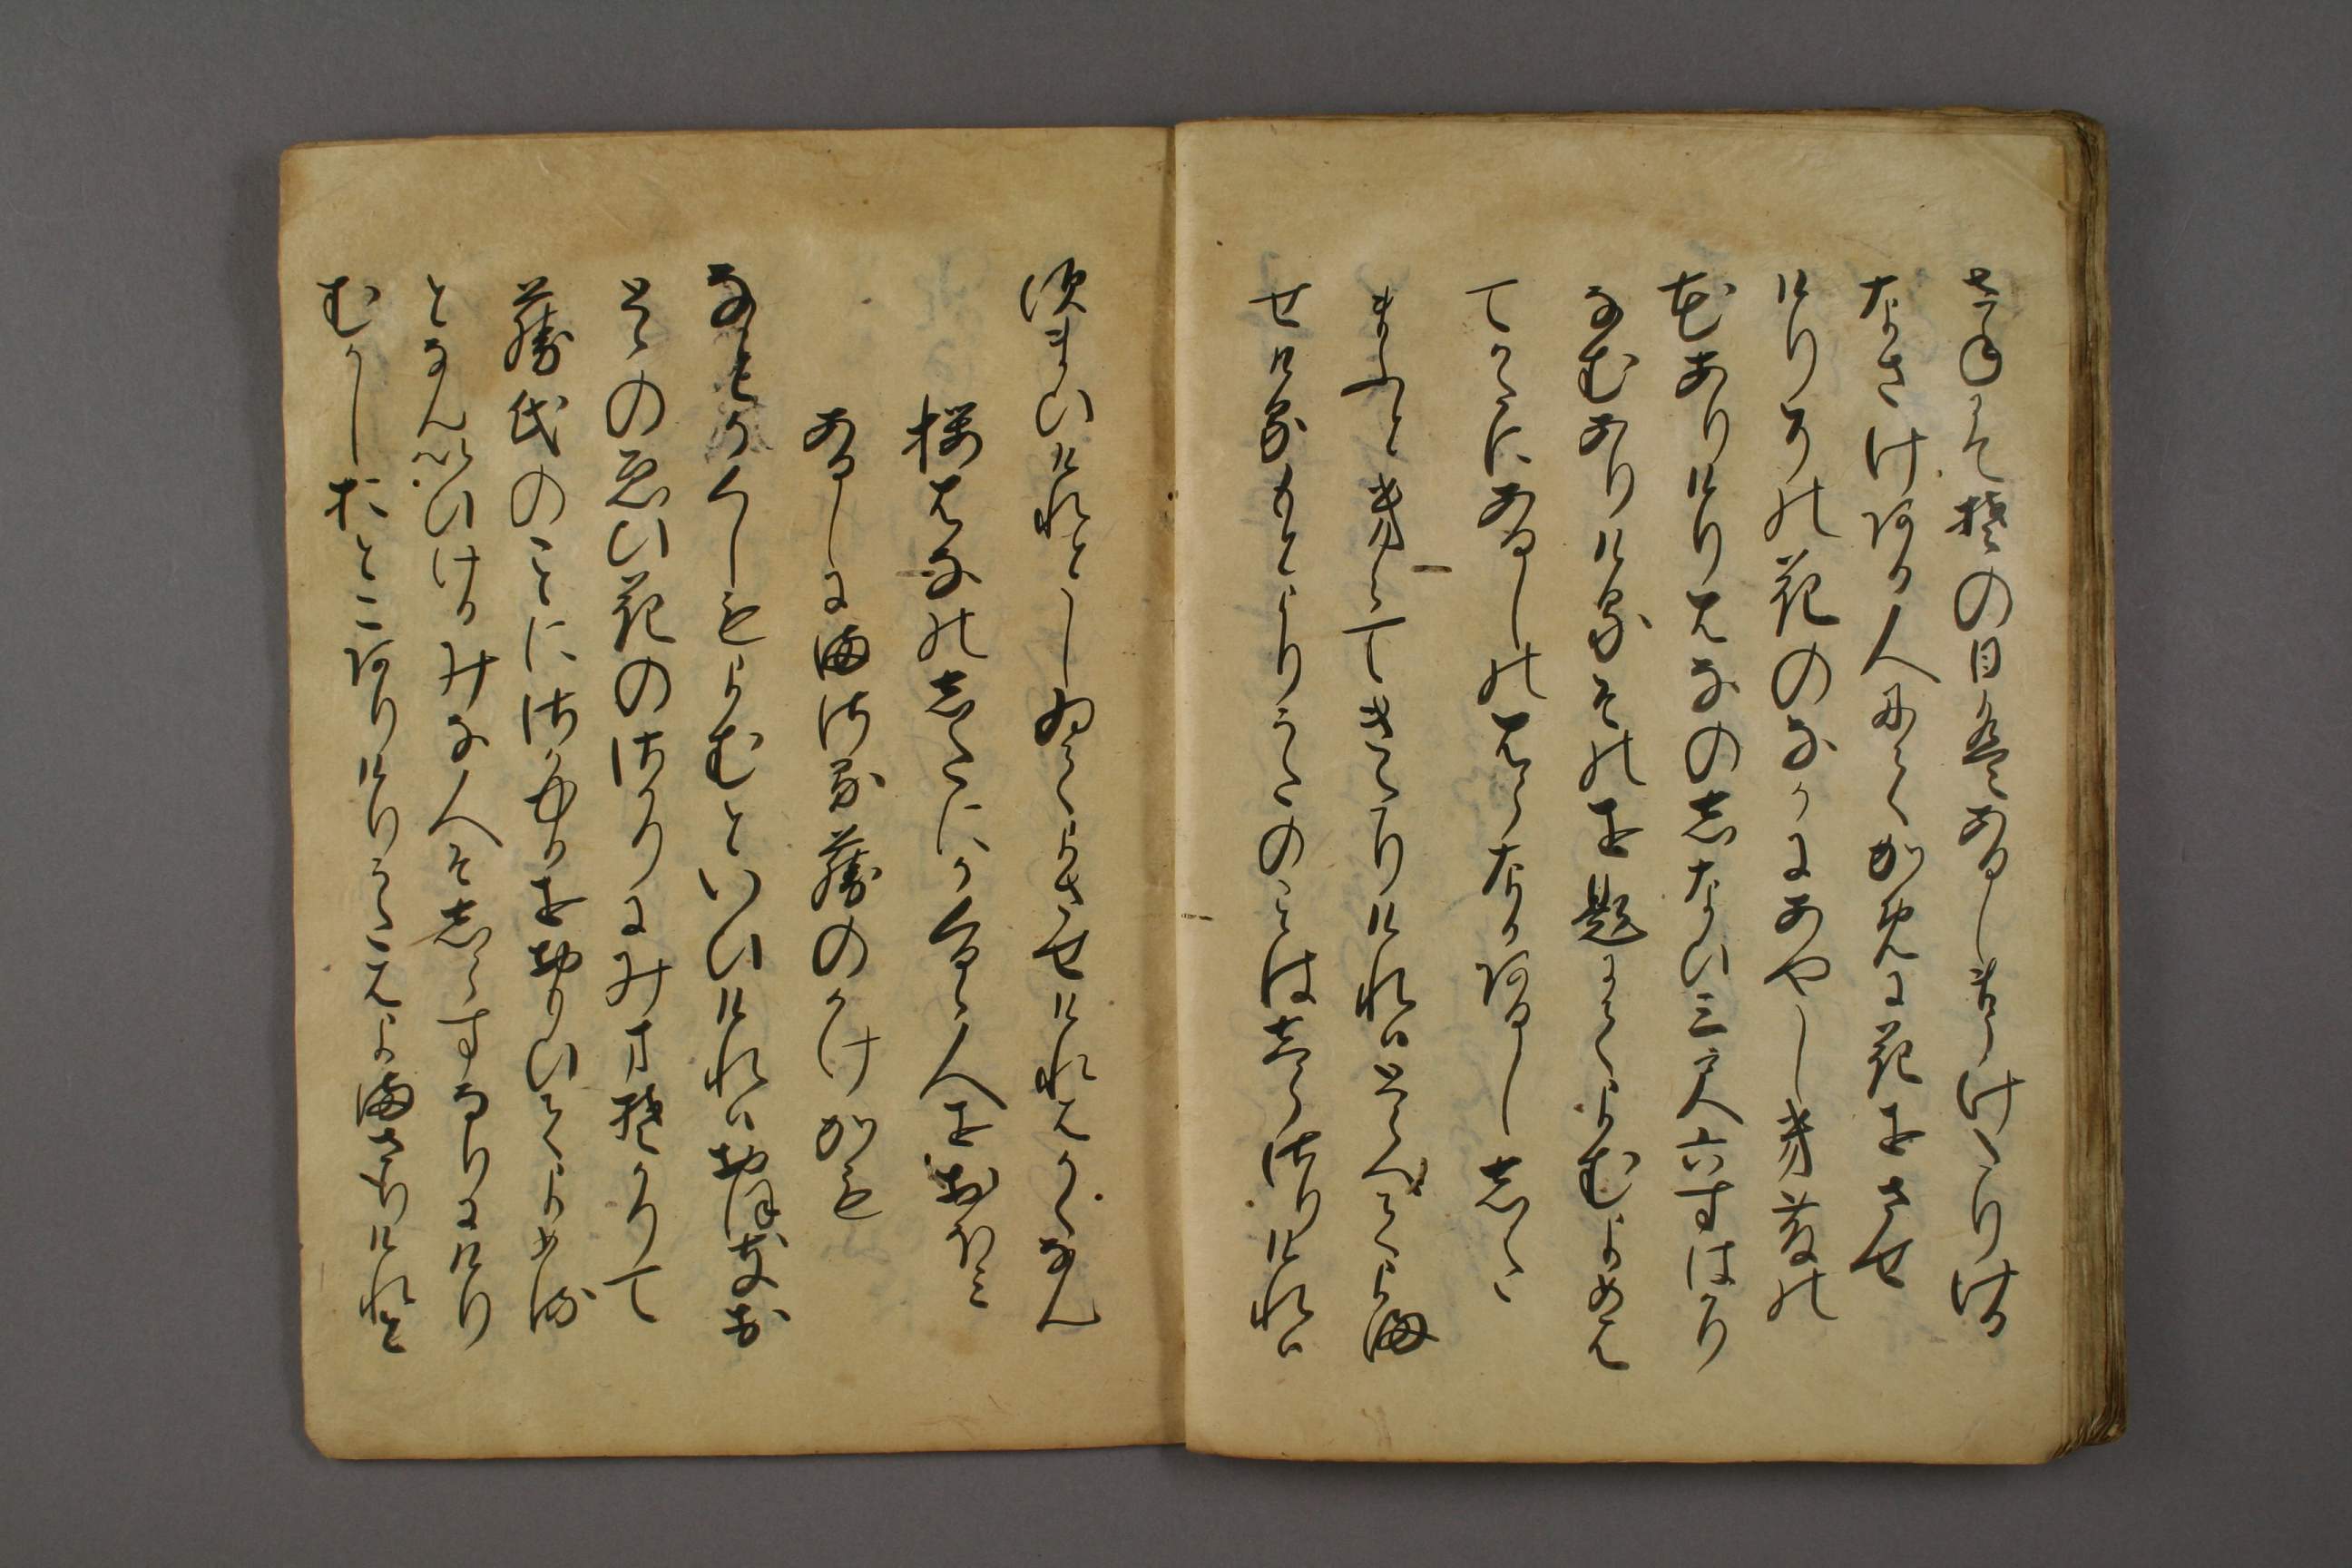 さねにてその日はあるしまうけしたりける
なさけある人にてかめに花をさせ
けりその花のなかにあやしき藤の
花ありけりはなのしなひ三尺六すはかり
なむありけるそれを題にてよむよみは
てかたにあるしのはらからなるあるしした
まふときゝてきたりけれはとらへてよま
せけるもとよりうたのことはしらさりけれは
すまひけれとしゐてよませけれはかくなん
桜はなのしたにかくるゝ人をおほみ
あるしにまさる藤のかけかも
なとかくしもよむといひけれはおほきお
とゝのゑい花のさかりにみまそかりて
藤氏のことにさかゆるをおもひてよめる
となんいひけるみな人そしらすなりにけり
むかしおとこありけりうたはよまさりけれと